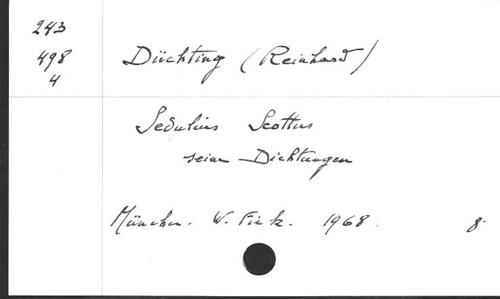 243
498
4
Düchting (Reinhard)
Sedulius Scottus
seine Dichtungen
München. W. Fink. 1968. 8